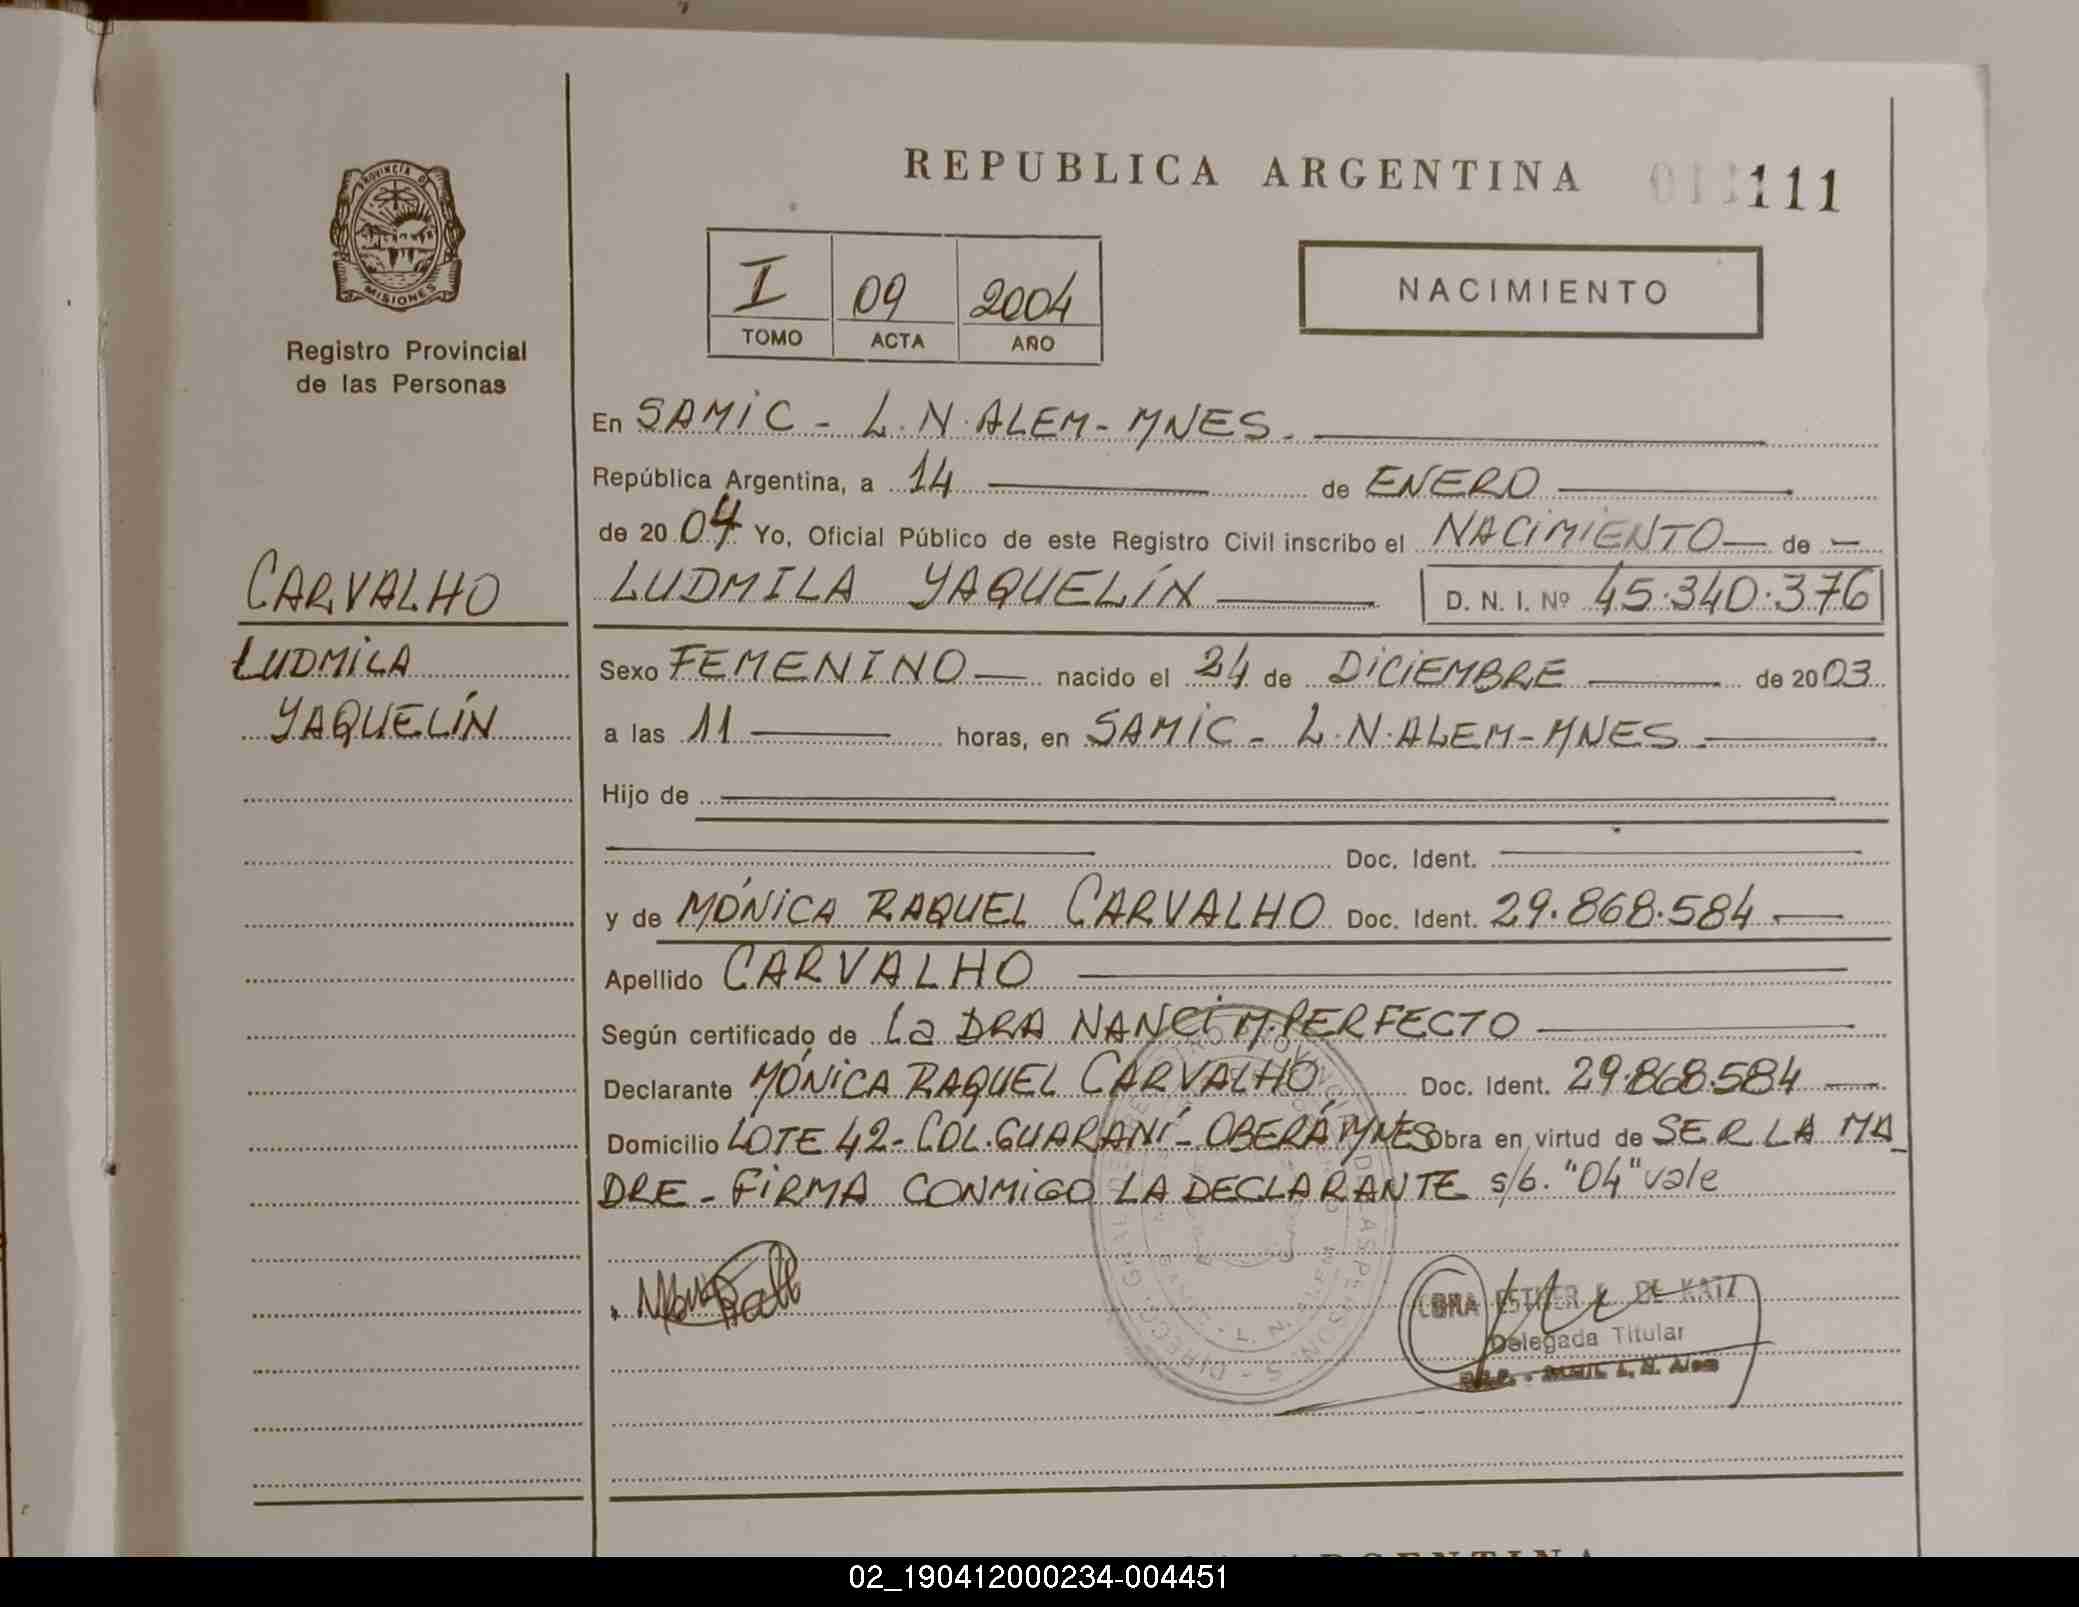 REPUBLICA ARGENTINA 111
PROVINCIA DE
MISIONES
Registro Provincial
de las Personas
I 09 2004
TOMO ACTA AÑO
NACIMIENTO
En SAMIC - L.N.ALEM - MNES.
República Argentina, a 14 de ENERO
de 2004 Yo, Oficial Público de este Registro Civil inscribo el NACIMIENTO de
CARVALHO
LUDMILA YAQUELÍN D. N. I. Nº 45.340.376
LUDMILA
YAQUELÍN
Sexo FEMENINO nacido el 24 de DICIEMBRE de 2003
a las 11 horas, en SAMIC - L.N.ALEM - MNES.
Hijo de
Doc. Ident.
y de MÓNICA RAQUEL CARVALHO Doc. Ident. 29.868.584
Apellido CARVALHO
Según certificado de La DRA NANCI M. PERFECTO
Declarante MÓNICA RAQUEL CARVALHO Doc. Ident. 29.868.584
Domicilio LOTE 42 - COL. GUARANÍ - OBERÁ MNES Obra en virtud de SER LA MA_
DRE - FIRMA CONMIGO LA DECLARANTE s/b. "04" vale
ESTHER DE KATZ
Delegada Titular
L. N. Alem
02_190412000234-004451